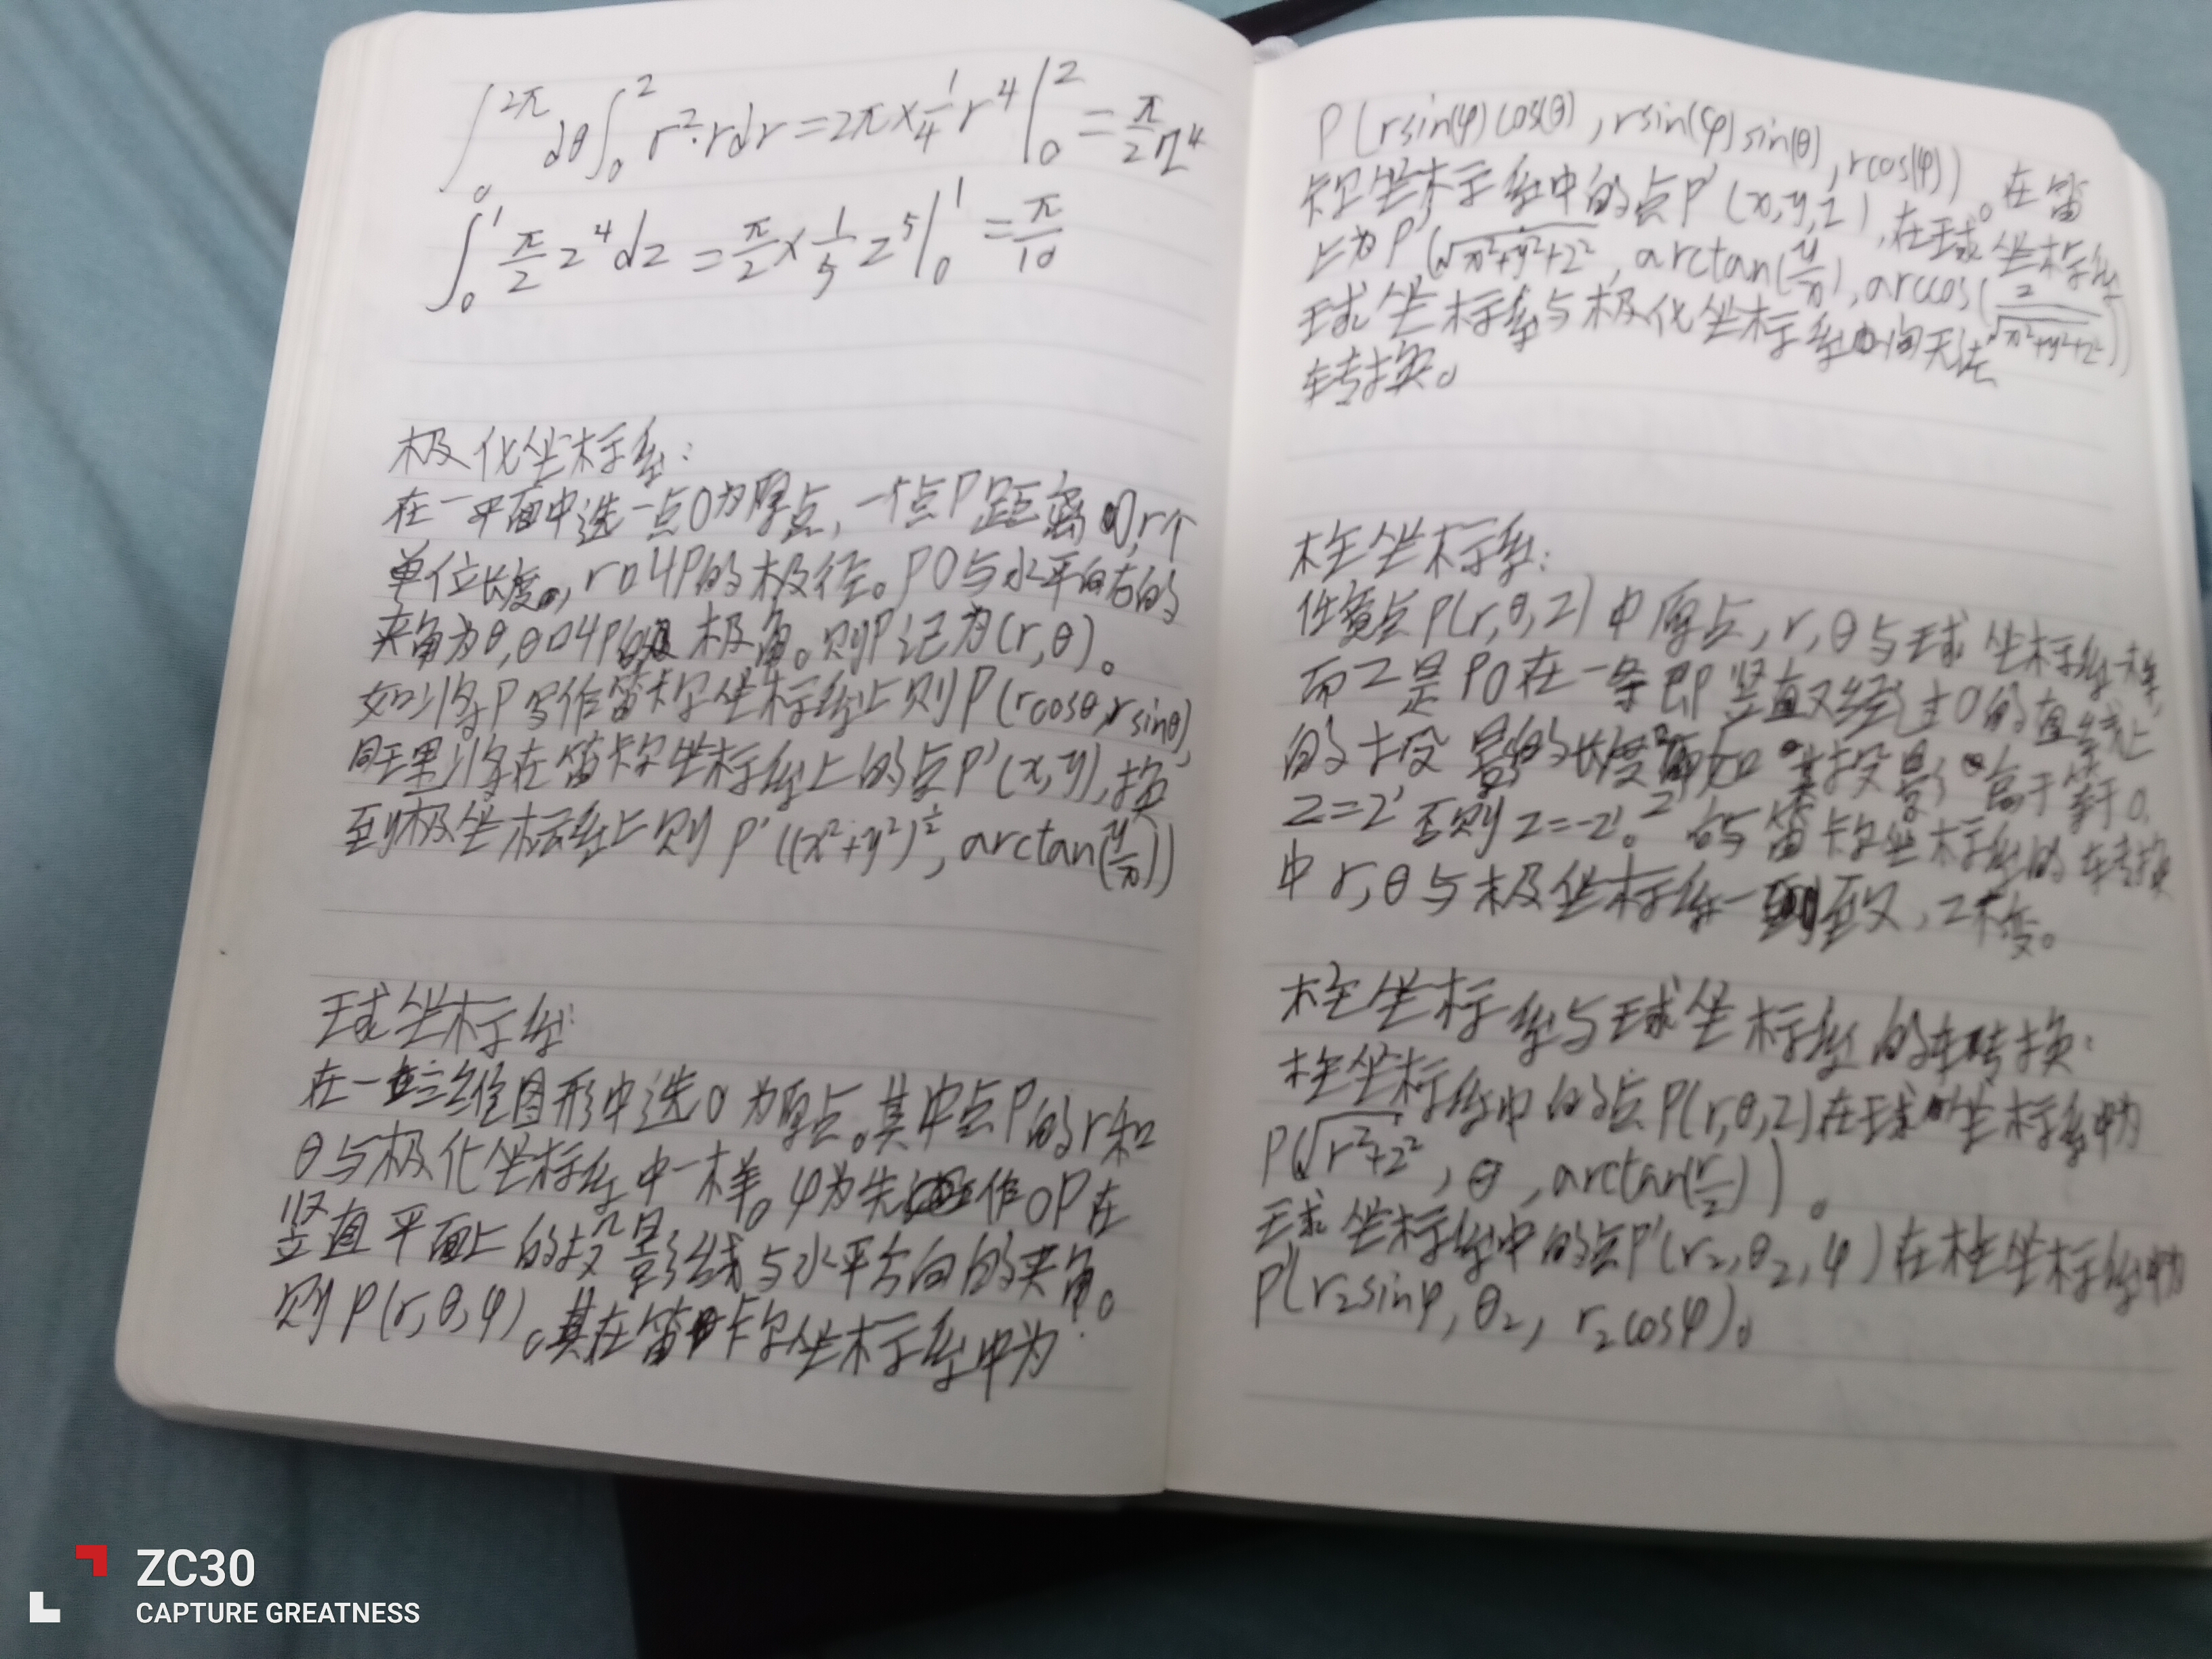 ∫₀^2π dθ ∫₀^z r²·rdr = 2π × 1/4 r⁴ |₀^z = π/2 z⁴
∫₀^1 π/2 z⁴dz = π/2 × 1/5 z⁵ |₀^1 = π/10
极化坐标系:
在一平面中选一点O为原点, 一个点P距离O,r个
单位长度, r叫P的极径。PO与水平向右的
夹角为θ,θ叫P的极角。则P记为(r,θ)。
如将P写作笛卡尔坐标系上则P(rcosθ,rsinθ),
同理将在笛卡尔坐标系上的点P'(x,y),换
到极坐标系上则P'((x²+y²)^½, arctan(y/x))
球坐标系:
在一三维图形中选O为原点。其中点P的r和
θ与极化坐标系中一样。φ为先作OP在
竖直平面上的投影线与水平方向的夹角。
则P(r,θ,φ)。其在笛卡尔坐标系中为:
P(rsin(φ)cos(θ),rsin(φ)sin(θ),rcos(φ))。在笛
卡尔坐标系中的点P'(x,y,z),在球坐标系
上为P'(√x²+y²+z², arctan(y/x), arccos(z/√x²+y²+z²))
球坐标系与极化坐标系中间无法
转换。
柱坐标系:
任意点P(r,θ,z)中原点,r,θ与球坐标系一样,
而z是PO在一条即竖直又经过O的直线上
的投影的长度 如其投影高于等于0,
z=z'否则z=-z'。与笛卡尔坐标系的转换
中r,θ与极坐标系一致,z不变。
柱坐标系与球坐标系的转换:
柱坐标系中的点P(r,θ,z)在球坐标系中为
P(√r²+z², θ, arctan(r/z))。
球坐标系中的点P'(r₂,θ₂,φ)在柱坐标系中为
P'(r₂sinφ, θ₂, r₂cosφ)。
ZC30
CAPTURE GREATNESS